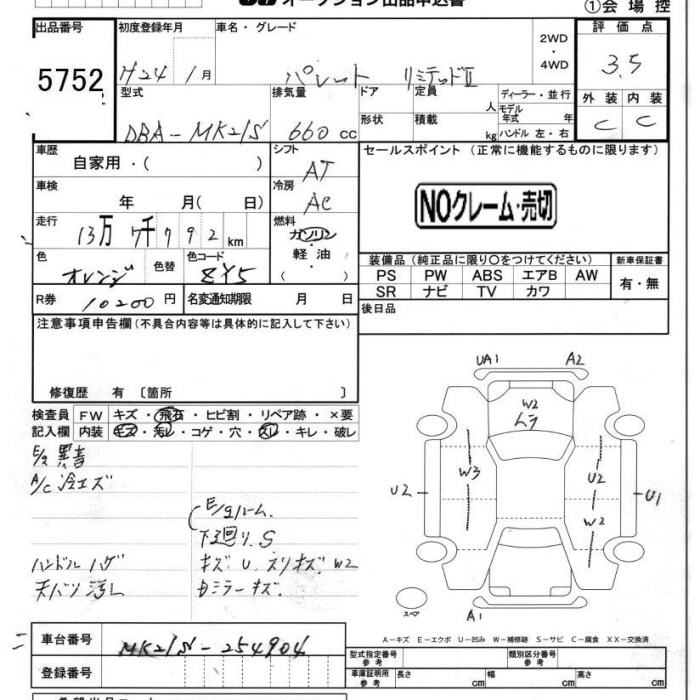 オークション出品申込書
①会場控
出品番号
5752
初度登録年月
H24年 1月
車名・グレード
パレット リミテッドⅡ
2WD
・
4WD
評価点
3.5
外装 内装
C C
型式
DBA-MK21S
排気量
660 cc
ドア
形状
定員
人
積載
kg
ディーラー・並行
モデル
年式 年
ハンドル 左・右
車歴
自家用・( )
シフト
AT
車検
年 月( 日)
冷房
AC
走行
13万 7千 7 9 2 km
燃料
ガソリン
軽油
( )
色
オレンジ
色替
色コード
ZY5
R券
10200 円
名変通知期限 月 日
セールスポイント (正常に機能するものに限ります)
NOクレーム・売切
装備品 (純正品に限り〇をつけてください)
PS PW ABS エアB AW
SR ナビ TV カワ
新車保証書
有・無
後日品
注意事項申告欄(不具合内容等は具体的に記入して下さい)
修復歴 有 〔箇所 〕
検査員
記入欄
FW キズ・飛石・ヒビ割・リペア跡・×要
内装 キズ・汚レ・コゲ・穴・スレ・キレ・破レ
E/g 異音
A/C 冷エズ
ハンドル ハゲ
天バリ 汚レ
E/gルーム
下廻り.S
キズ U. スリキズ. W2
ミラー キズ.
UA1 A2
W2
ムラ
U2 W3 U2 U1
W2
A1
スペア
A-キズ E-エクボ U-凹み W-補修跡 S-サビ C-腐食 XX-交換済
車台番号
MK21S-254904
登録番号
型式指定番号
参考
類別区分番号
参考
車庫証明用
参考
長さ cm 幅 cm 高さ cm